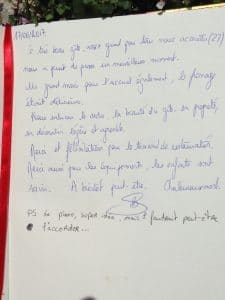 17/06/2017
Ce très beau gîte, assez grand pour bien nous accueillir (27)
nous a permis de passer un merveilleux moment.
Un grand merci pour l'accueil également, le fromage
était délicieux.
Nous retenons le cadre, la beauté du gîte, sa propreté,
sa décoration legère et apparente.
Merci et félicitations pour le travail de restauration.
Merci aussi pour les équipements, les enfants sont
ravis. A bientôt peut-être. Chaleureusement.
PS: le piano, super idée, mais il faudrait peut-être
l'accorder...